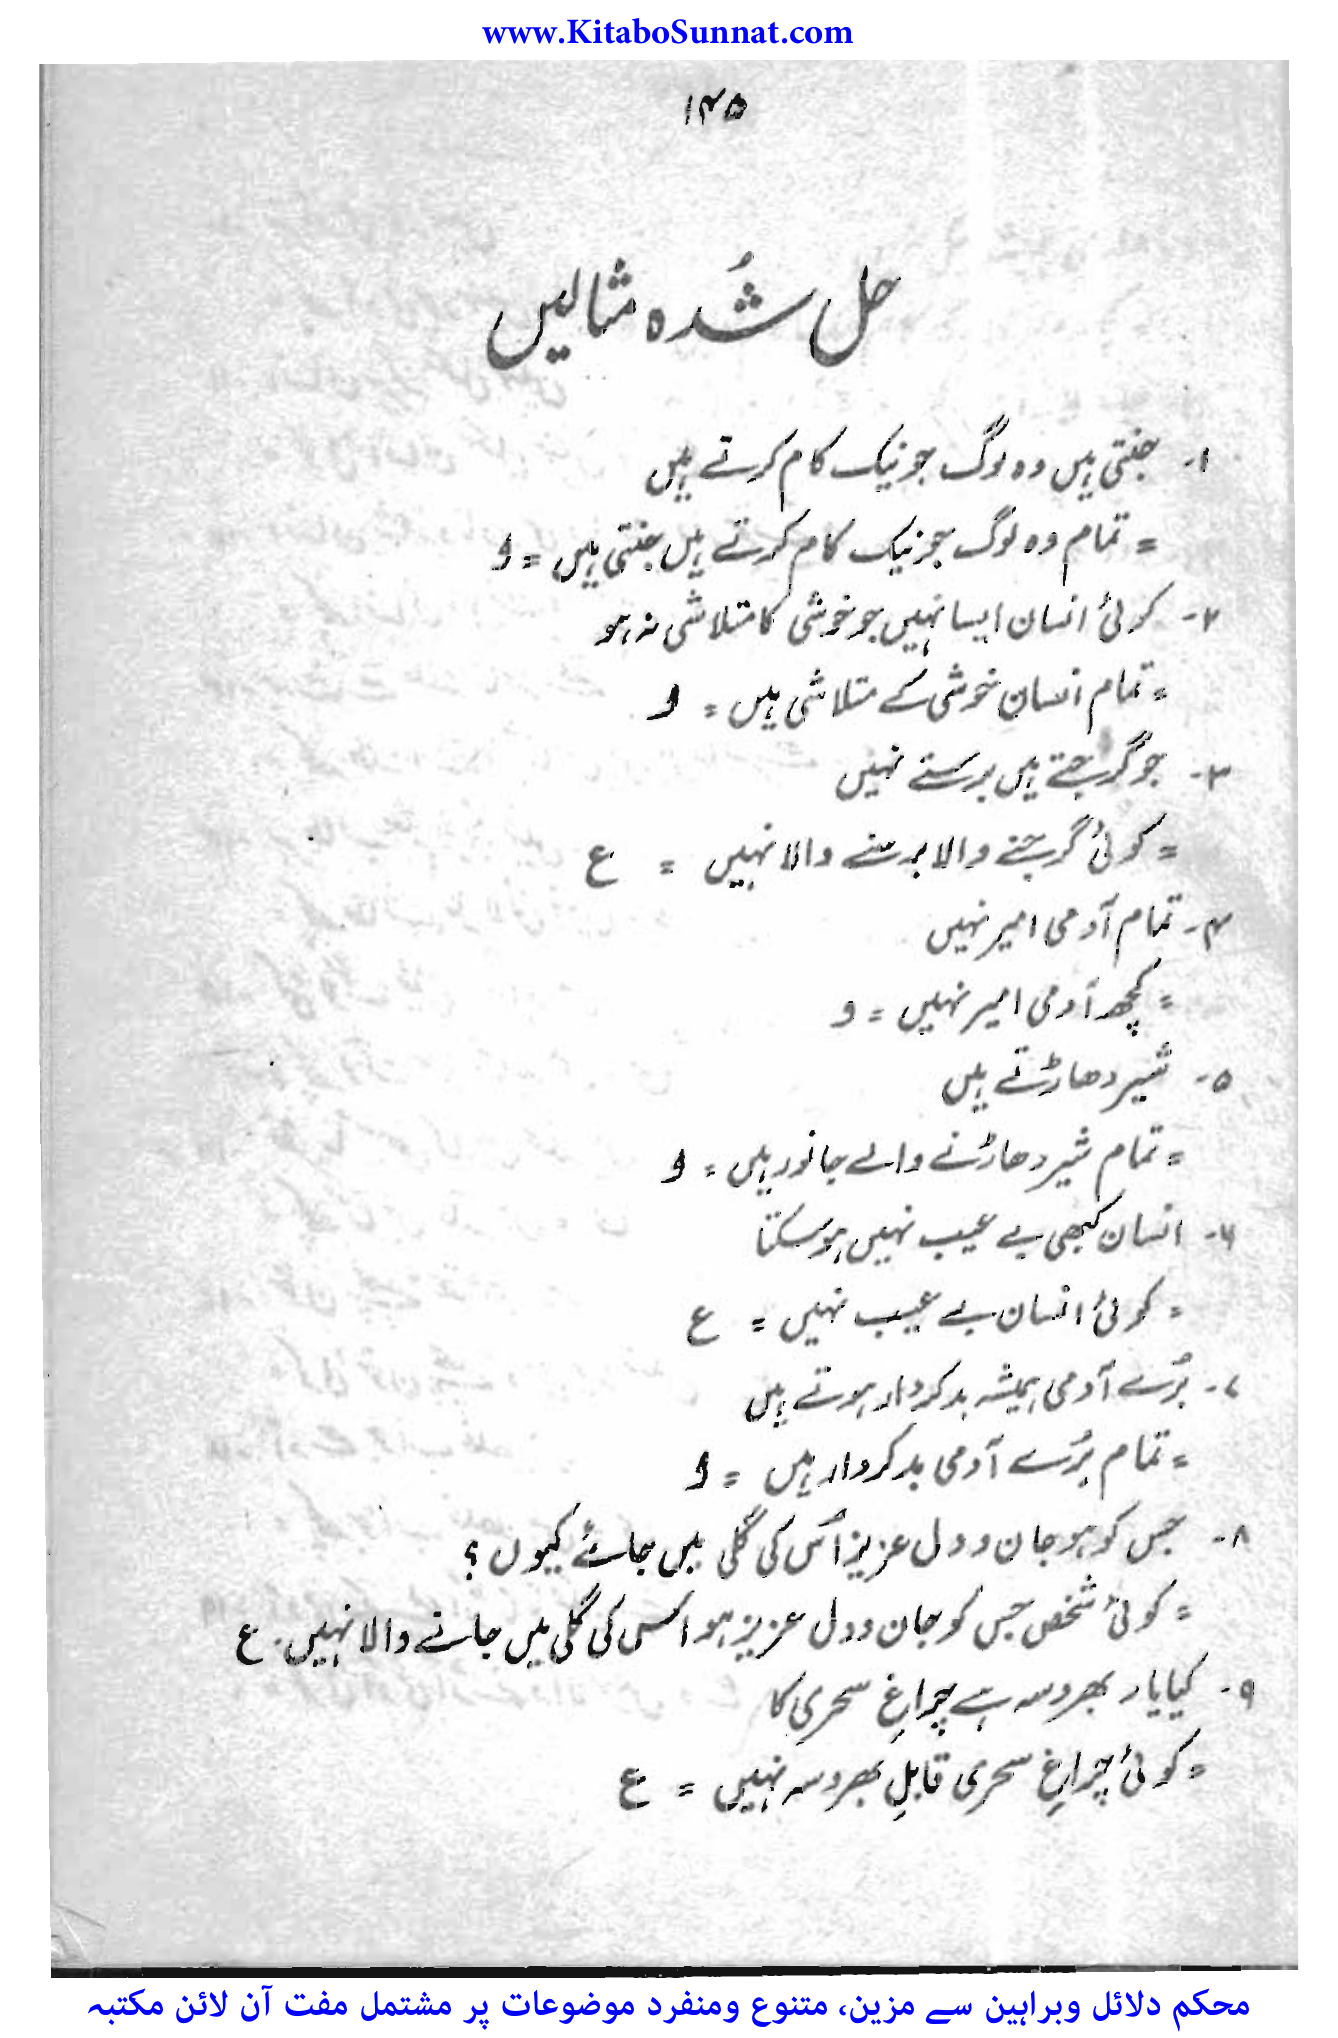 www.KitaboSunnat.com
۱۴۵
حل شُدہ مثالیں
۱- جنتی ہیں وہ لوگ جو نیک کام کرتے ہیں
= تمام وہ لوگ جو نیک کام کرتے ہیں جنتی ہیں = ا
۲- کوئی انسان ایسا نہیں جو خوشی کا متلاشی نہ ہو
= تمام انسان خوشی کے متلاشی ہیں = ا
۳- جو گرجتے ہیں برستے نہیں
= کوئی گرجنے والا برسنے والا نہیں = ع
۴- تمام آدمی امیر نہیں
= کچھ آدمی امیر نہیں = و
۵- شیر دھاڑتے ہیں
= تمام شیر دھاڑنے والے جانور ہیں = ا
۶- انسان کبھی بے عیب نہیں ہو سکتا
= کوئی انسان بے عیب نہیں = ع
۷- بُرے آدمی ہمیشہ بدکردار ہوتے ہیں
= تمام بُرے آدمی بدکردار ہیں = ا
۸- جس کو ہو جان و دل عزیز اُس کی گلی میں جائے کیوں؟
= کوئی شخص جس کو جان و دل عزیز ہو اس کی گلی میں جانے والا نہیں. ع
۹- کیا یار بھروسہ ہے چراغِ سحری کا
= کوئی چراغِ سحری قابلِ بھروسہ نہیں = ع
محکم دلائل وبراہین سے مزین، متنوع ومنفرد موضوعات پر مشتمل مفت آن لائن مکتبہ